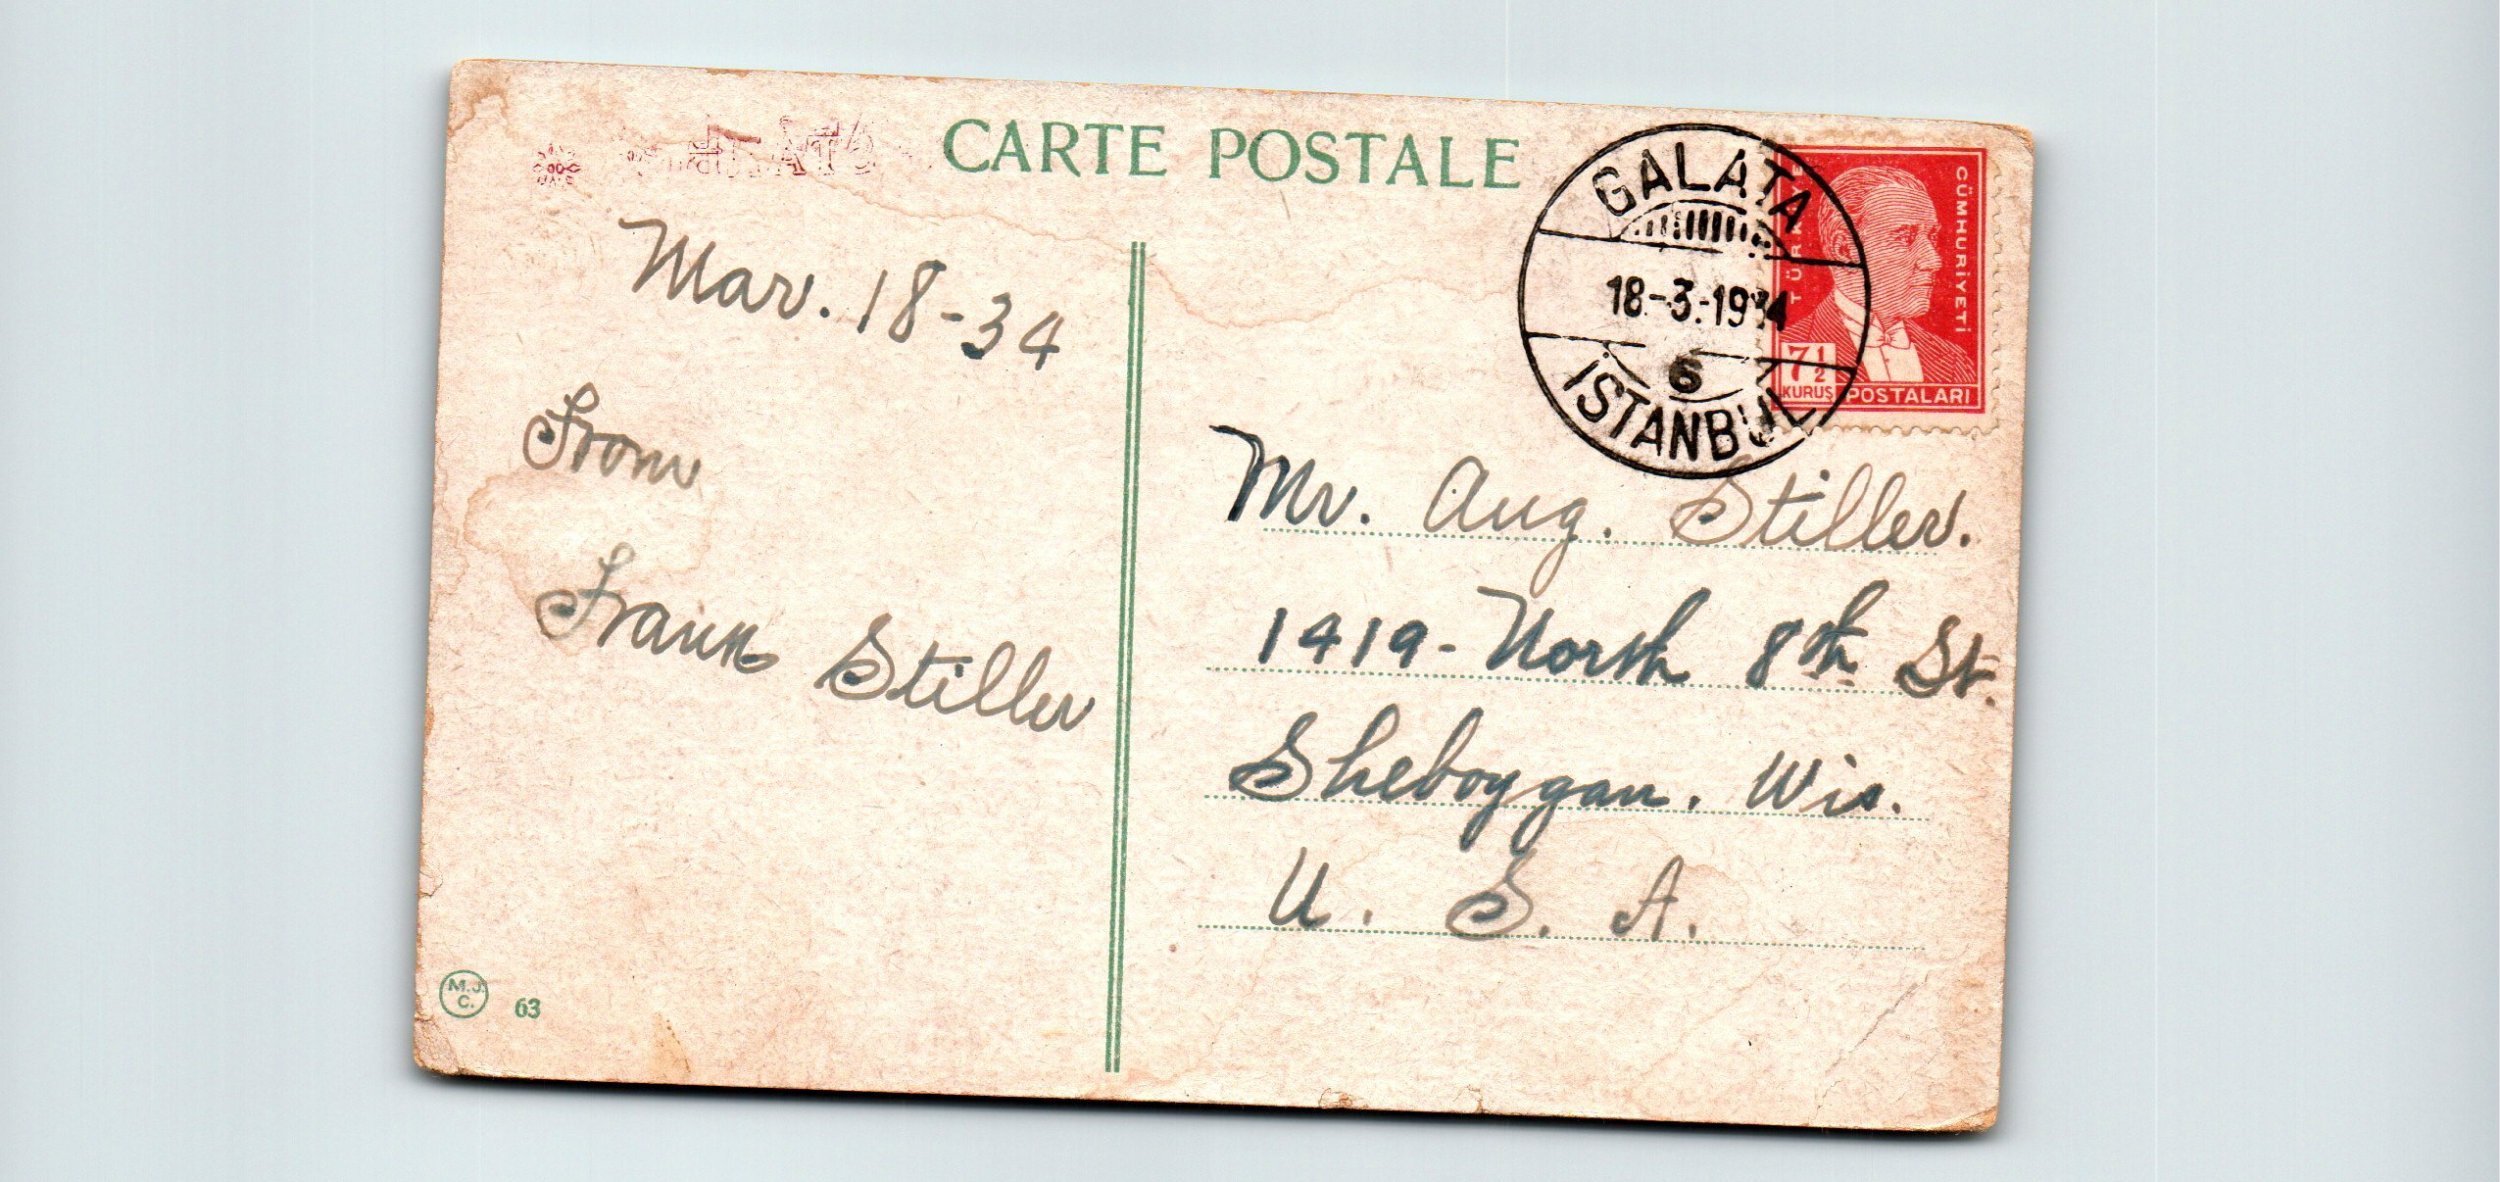 CARTE POSTALE
GALATA
18-3-1934
6
ISTANBUL
TÜRKİYE
CÜMHURİYETİ
7½
KURUŞ
POSTALARI
Mar. 18-34
From
Frank Stiller
Mr. Aug. Stiller.
1419-North 8th St.
Sheboygan. Wis.
U. S. A.
M.J.
C.
63